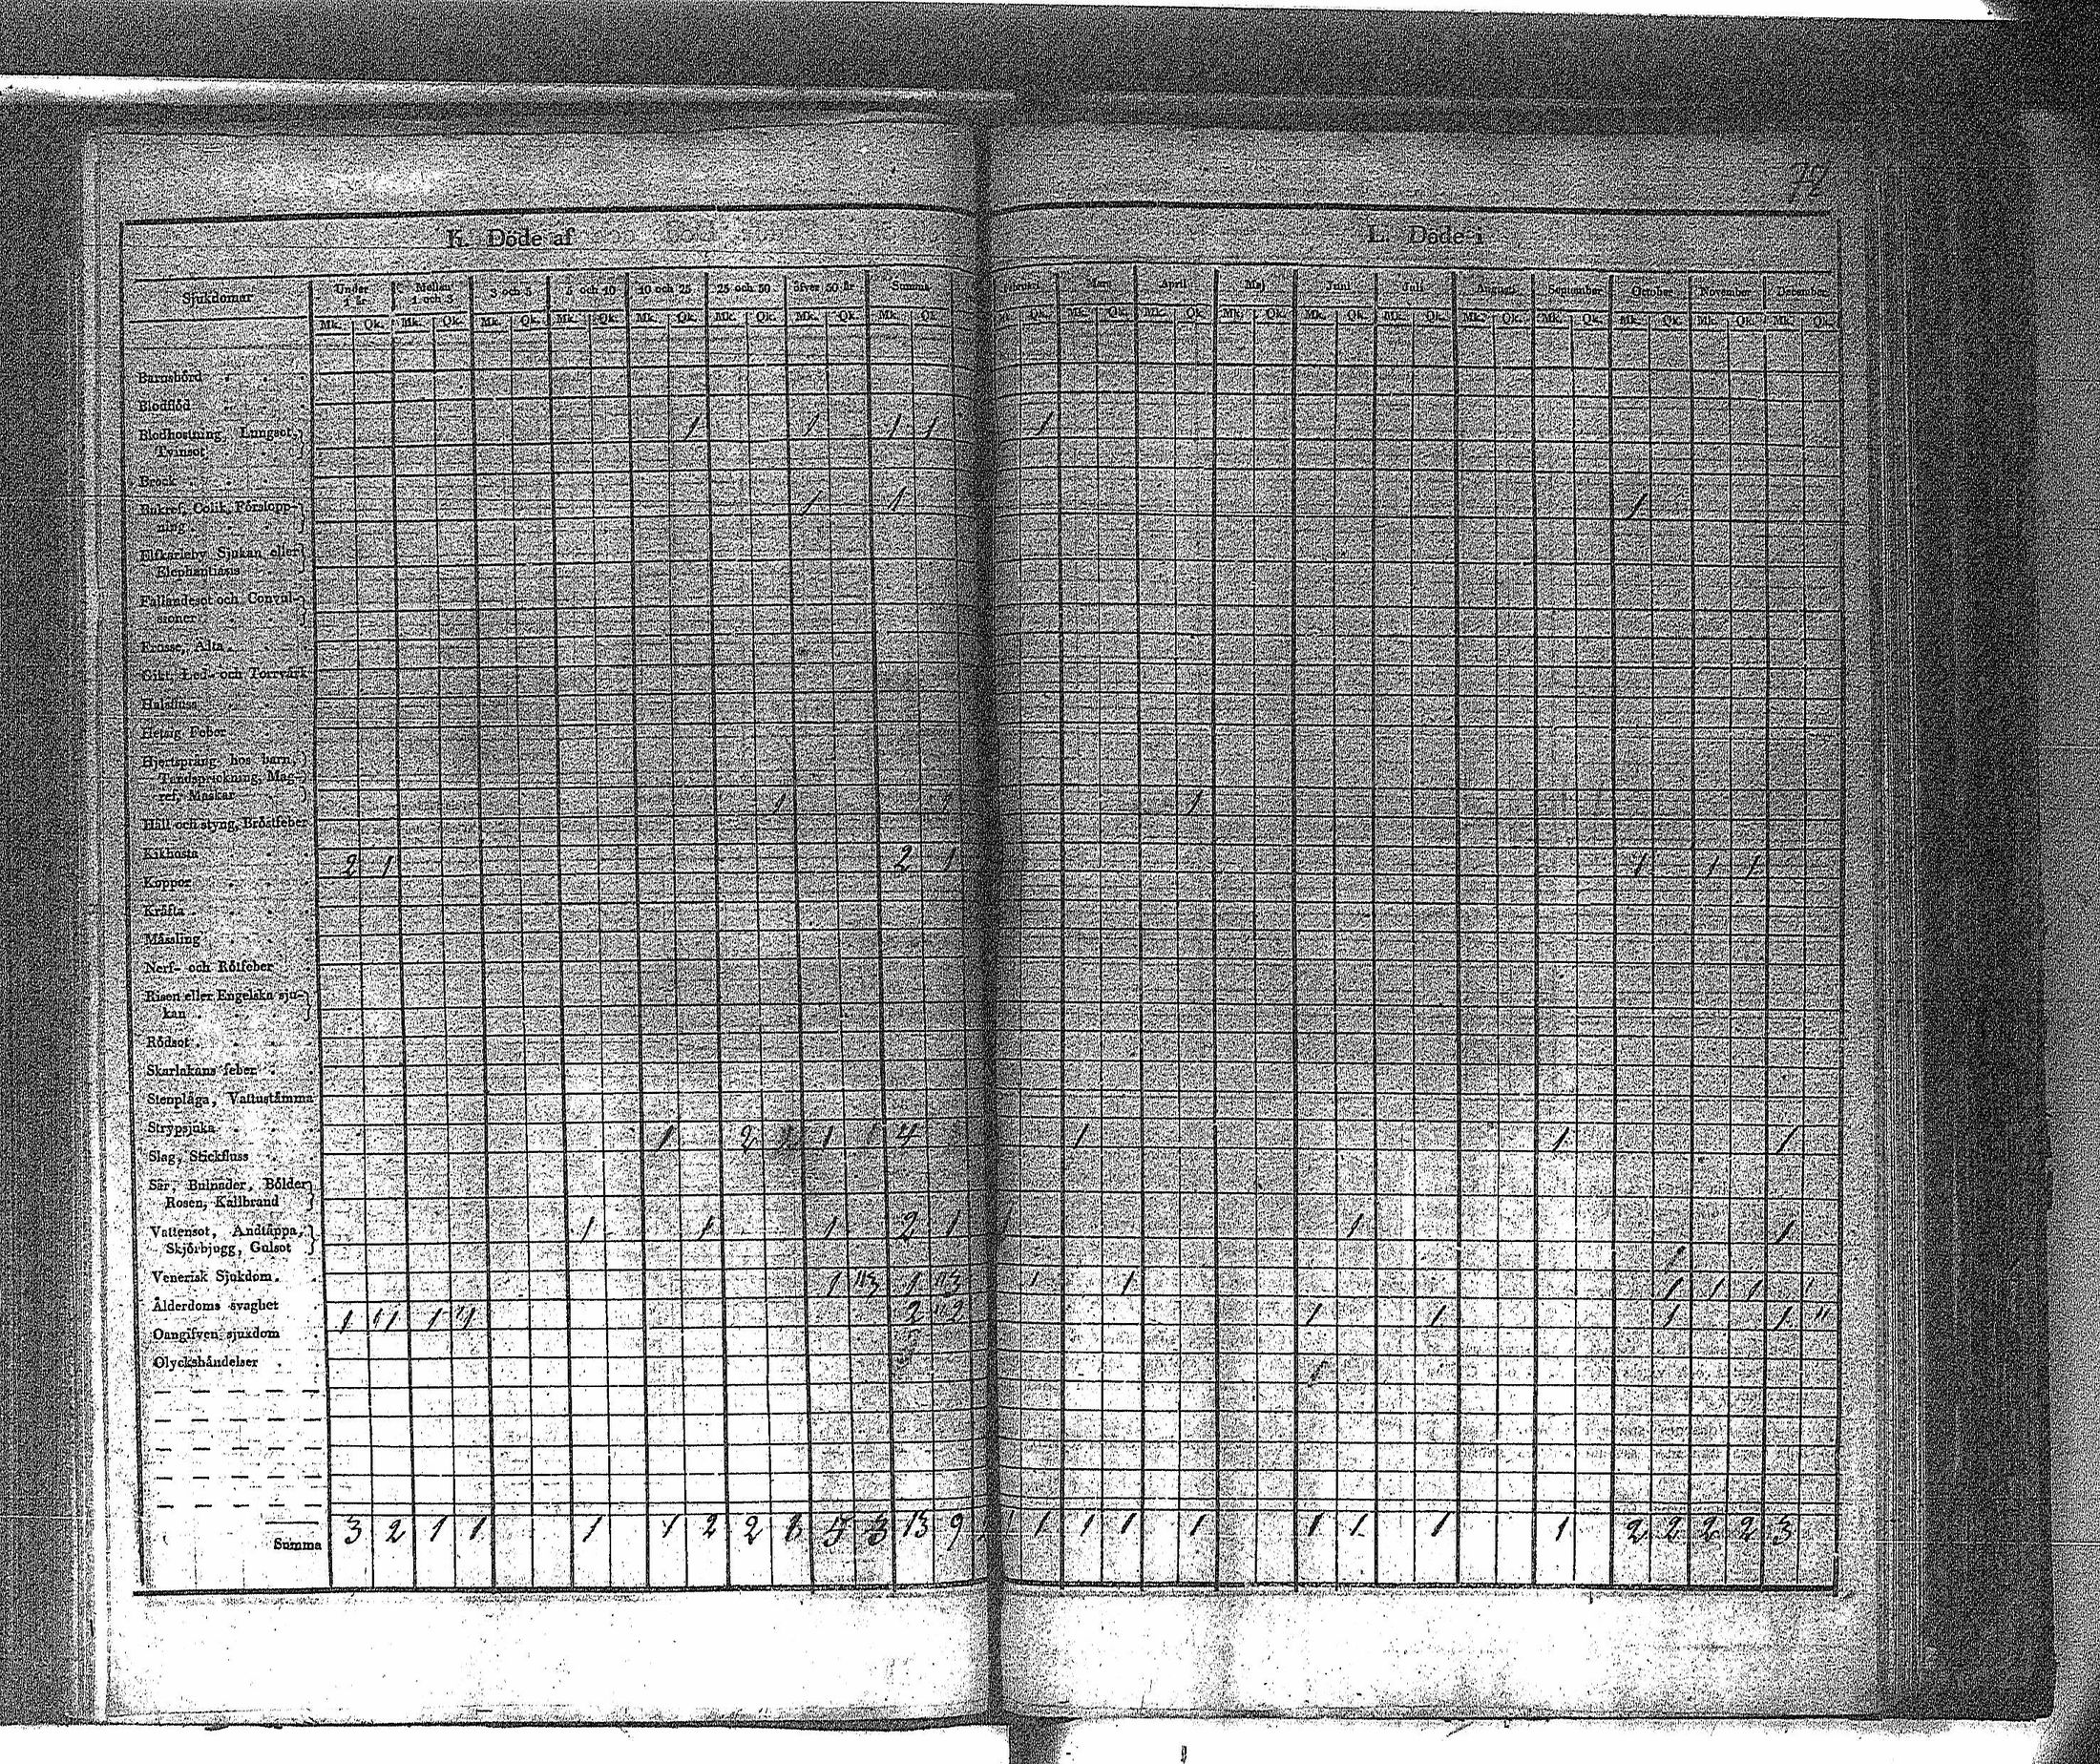 72
K. Döde af
L. Döde i
Sjukdomar Under 1 år Mellan 1 och 3 3 och 5 5 och 10 10 och 25 25 och 50 öfver 50 år Summa Februari Mars April Maj Juni Juli Augusti September October November December
Mk. Qk. Mk. Qk. Mk. Qk. Mk. Qk. Mk. Qk. Mk. Qk. Mk. Qk. Mk. Qk. Mk. Qk. Mk. Qk. Mk. Qk. Mk. Qk. Mk. Qk. Mk. Qk. Mk. Qk. Mk. Qk. Mk. Qk. Mk. Qk. Mk. Qk.
Barnsbörd
Blodflöd
Blodhostning, Lungsot, 1 1 1 1 1
Tvinsot
Bråck
Bukref, Colik, Förstopp- 1 1 1
ning
Elfkarleby Sjukan eller
Elephantiasis
Fallandesot och Convul-
sioner
Frossa, Älta
Gikt, Led- och Torrvärk
Halsfluss
Hetsig Feber
Hjertsprång hos barn,
Tandsprickning, Mag-
ref, Maskar
Håll och styng, Bröstfeber 1 1 1
Kikhosta
2 1 2 1 1 1 1
Koppor
Kräfta
Mässling
Nerf- och Rötfeber
Risen eller Engelska sju-
kan
Rödsot
Skarlakans feber
Stenplåga, Vattustämma
Strypsjuka
1 2 1 4 1 1 1
Slag, Stickfluss
Sår, Bulnader, Bölder
Rosen, Kallbrand
Vattensot, Andtäppa, 1 1 1 2 1 1 1 1
Skjörbjugg, Gulsot
Venerisk Sjukdom
1 3 1 3 1 1 1 1 1
Ålderdoms svaghet
1 1 1 1 2 2 1 1 1 1
Oangifven sjukdom
Olyckshändelser
1
Summa 3 2 1 1 1 1 2 2 1 5 3 13 9 1 1 1 1 1 1 1 1 1 2 2 2 2 3